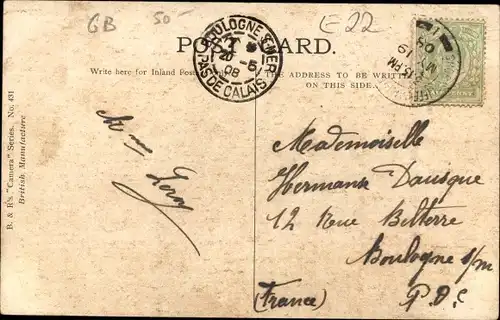 GB 50- E22
POST CARD.
BOULOGNE S MER
20 -5
08
PAS DE CALAIS
Write here for Inland Post
THE ADDRESS TO BE WRITTEN
ON THIS SIDE.
B. & R's "Camera" Series. No. 431
British Manufacture
Leroy
Mademoiselle
Hermans Dausque
12 Rue Belterre
Boulogne s/m
(France) P.D.C